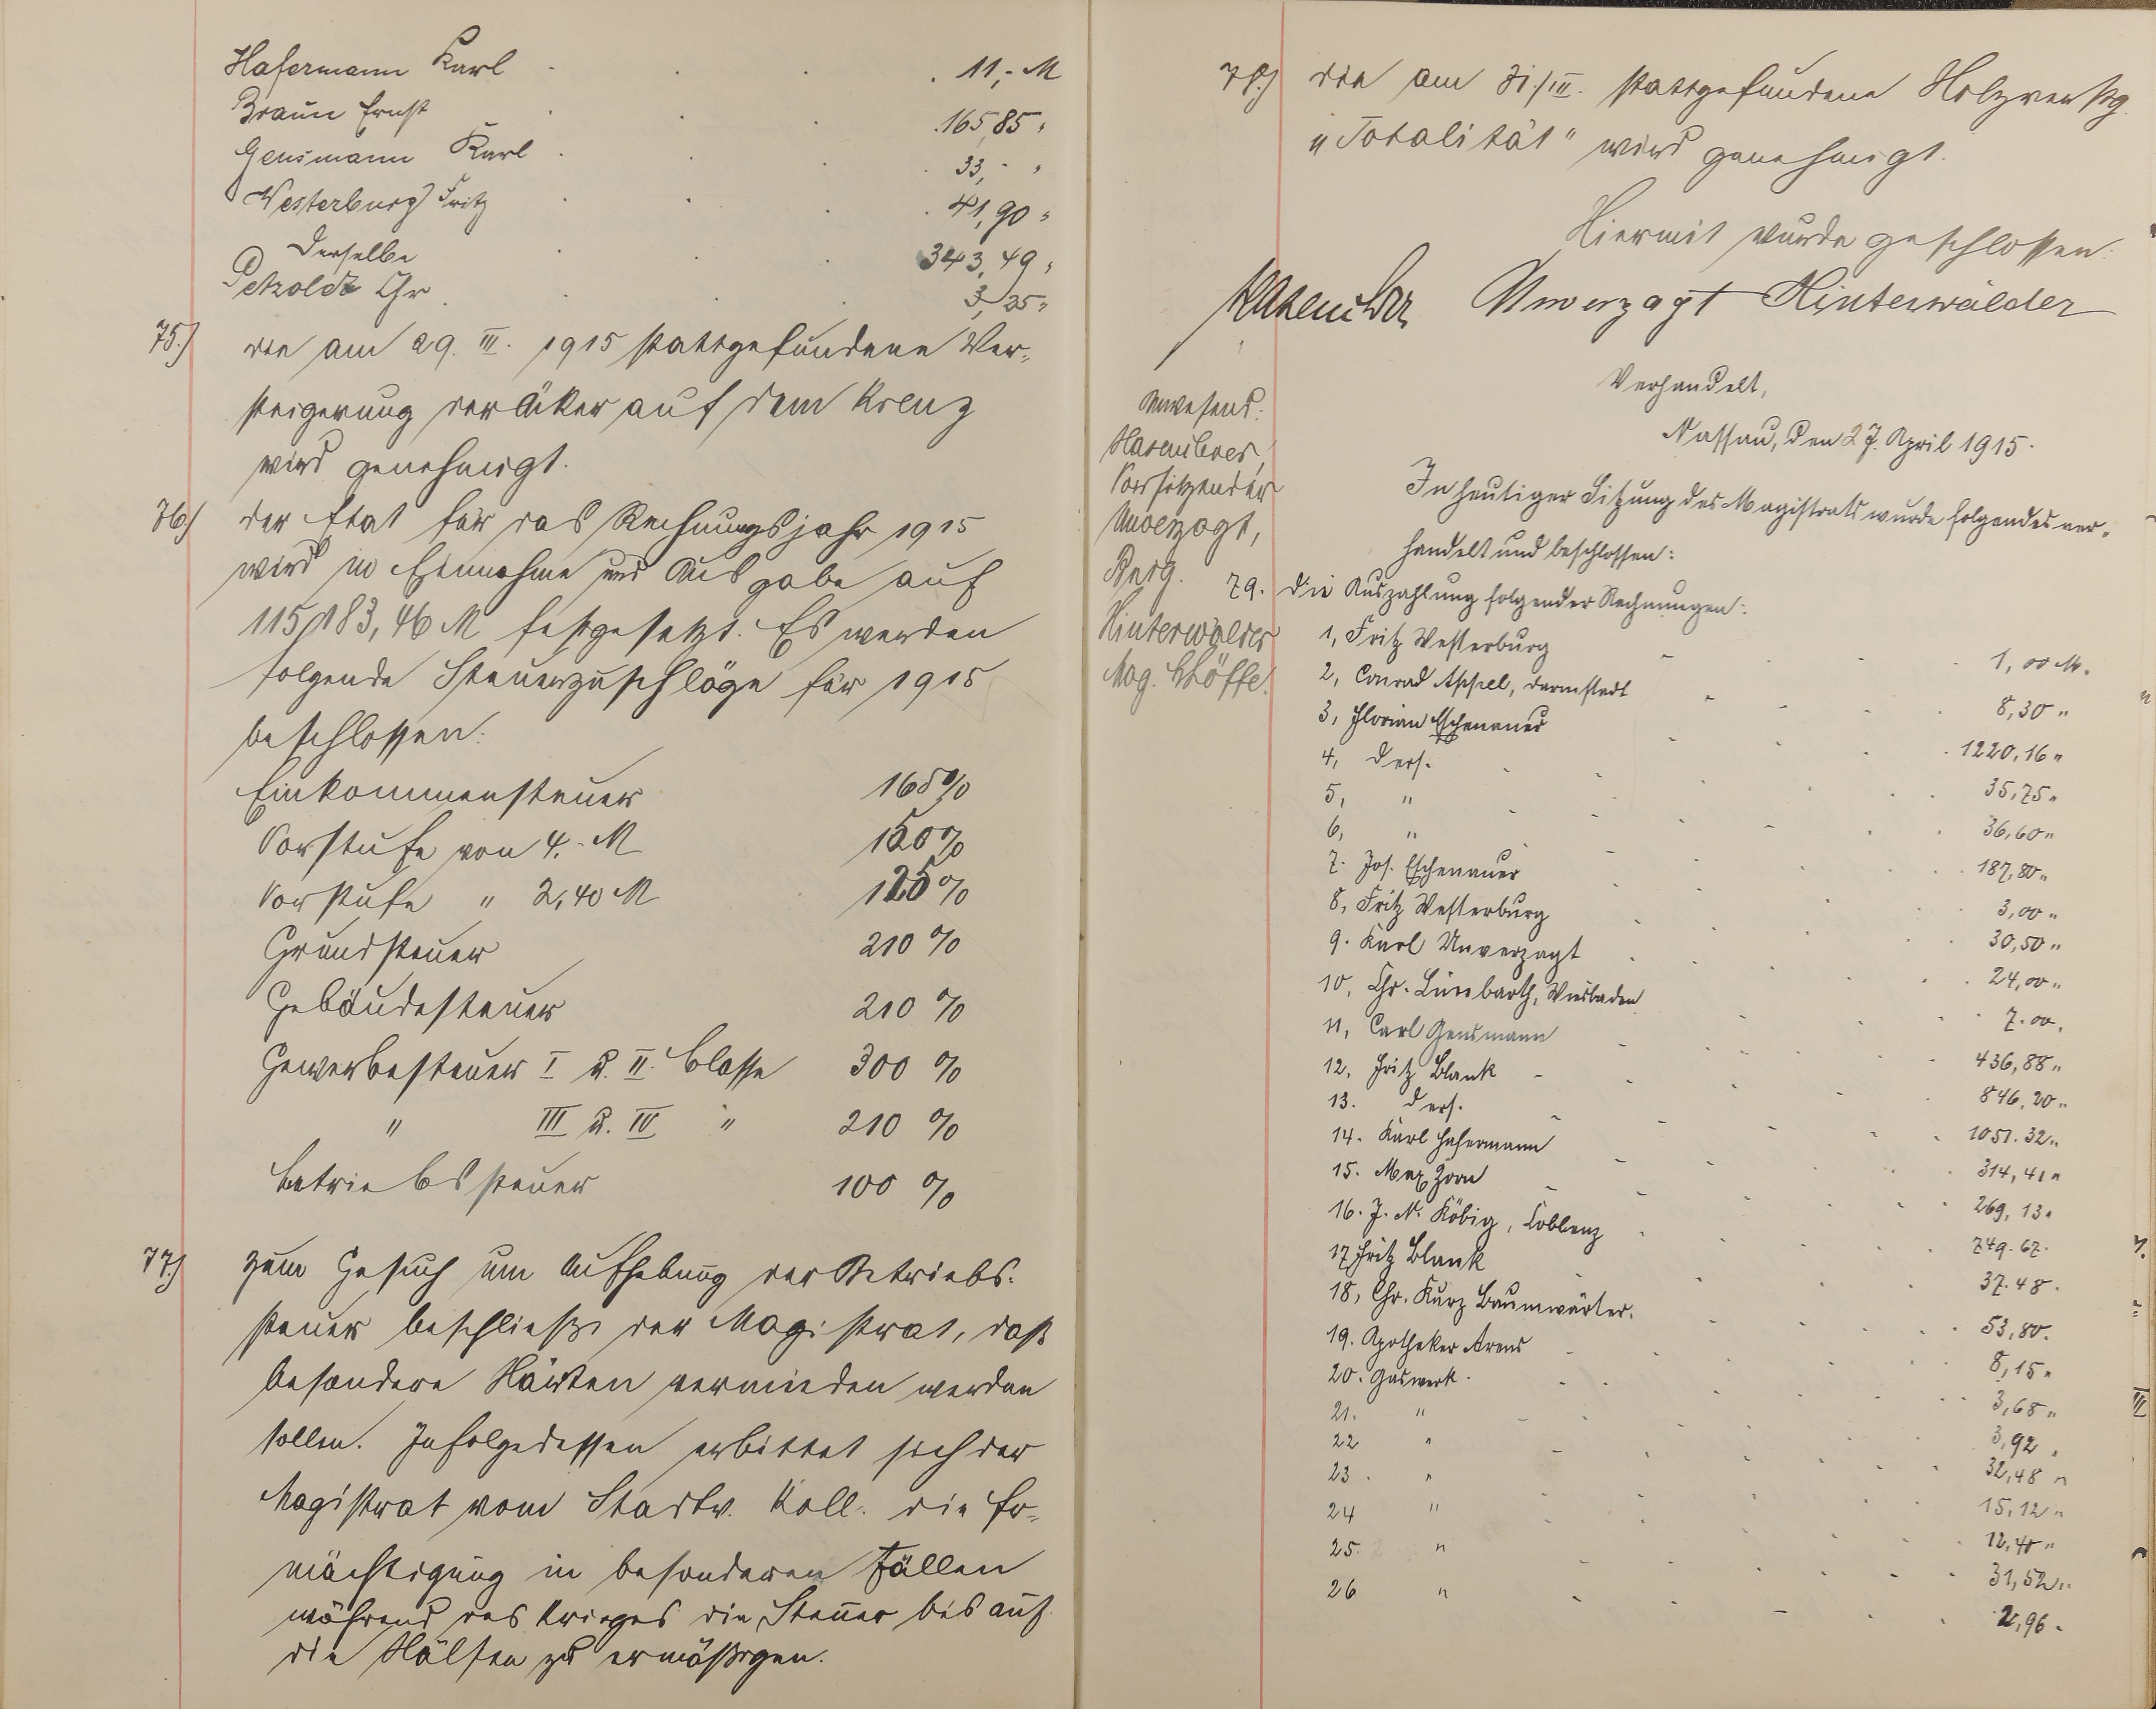 Hafermann Karl . . . . 11,- M
Braun Ernst . . . 165,85 "
Gensmann Karl . . . 33,- "
Westerburg Fritz . . . . 41,90 "
Derselbe . . . 343,49 "
Petzoldt Chr. . . . 3,25 "
75.) die am 29. III. 1915 stattgefundene Ver-
steigerung der Äker auf dem Kreuz
wird genehmigt.
76.) der Etat für das Rechnungsjahr 1915
wird in Einnahme und Ausgabe auf
115183,46 M festgesetzt. Es werden
folgende Steuerzuschläge für 1915
beschlossen:
Einkommensteuer 165%
Vorstufe von 4.- M 150%
Vorstufe " 2,40 M 125%
Grundsteuer 210 %
Gebäudesteuer 210 %
Gewerbesteuer I u. II. Classe 300 %
" III u. IV " 210 %
Betriebssteuer 100 %
77.) Zum Gesuch um Aufhebung der Betriebs-
steuer beschließt der Magistrat, daß
besondere Härten vermieden werden
sollen. Infolgedessen erbittet sich der
Magistrat vom Stadtv. Koll. die Er-
mächtigung in besonderen Fällen
während des Krieges die Steuer bis auf
die Hälfte zu ermäßigen.
78.) die am 31./III. stattgefundene Holzverstg.
"Totalität" wird genehmigt.
Hiermit wurde geschlossen:
Hasenclever Unverzagt Hinterwälder
Verhandelt,
Nassau, den 27. April 1915.
Anwesend:
Hasenclever,
Vorsitzender
Unverzagt,
Berg.
Hinterwälder
Mag. Schöffe.
In heutiger Sitzung des Magistrats wurde folgendes ver-
handelt und beschlossen:
79. Die Auszahlung folgender Rechnungen:
1, Fritz Westerburg 1,00 M.
2, Conrad Appel, Darmstadt 8,30 "
3, Florian Eschenauer 1220,16 "
4, Ders. 35,75 "
5, " 36,60 "
6, " 187,80 "
7. Jos. Eschenauer 3,00 "
8, Fritz Westerburg 30,50 "
9. Karl Unverzagt 24,00 "
10, Chr. Limbarth, Wiesbaden 7.00.
11, Carl Gensmann 436,88 "
12, Fritz Blank 846,20 "
13. Ders. 1051.32 "
14. Karl Hafermann 314,41 "
15. Max Zorn 269,13 "
16. J. N. Köbig, Coblenz 749.67.
17, Fritz Blank 37.48.
18, Chr. Kurz Baumwärter. 53,80.
19. Apotheker Arens 8,15 "
20. Gaswerk. 3,68 "
21. " 3,92 "
22 " 32,48 "
23. " 15,12 "
24 " 12,40 "
25. " 31,52 "
26 " 2,96.